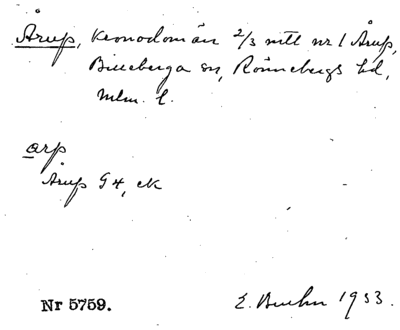 Årup, kronodomän 2/3 mtl nr 1 Årup,
Billeberga sn, Rönnebergs hd,
Mlm. l.
arp
Årup G4, ek
Nr 5759.
E. 1933.